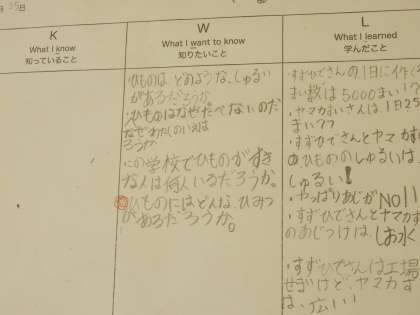 25日
K
What I know
知っていること
W
What I want to know
知りたいこと
L
What I learned
学んだこと
ひものは どのような、しゅるい
があるだろうか
ひものはなぜたべないのだ
ろうか
この学校でひものがすき
な人は何人いるだろうか。
ひものにはどんな、ひみつ
があるだろうか。
・すずひでさんの1日に作る
まい数は5000まい!?
・ヤマカすいさんは、1日25
まい??
・すずひでさんとヤマカす
のひもののしゅるいは
しゅるい!
・やっぱりあじがNO1!
・すずひでさんとヤマカす
のあじつけは、しお水
・すずひでさんは工場
せまいけど、ヤマカす
は、広い!!